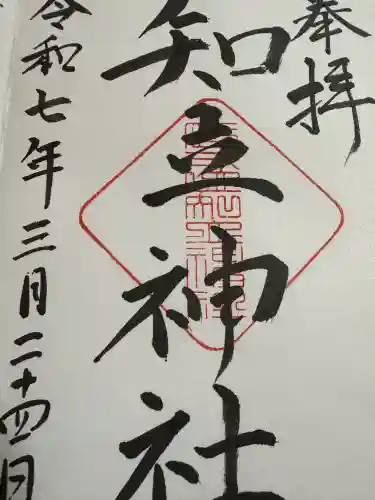 奉拝
知立神社
令和七年三月二十四日